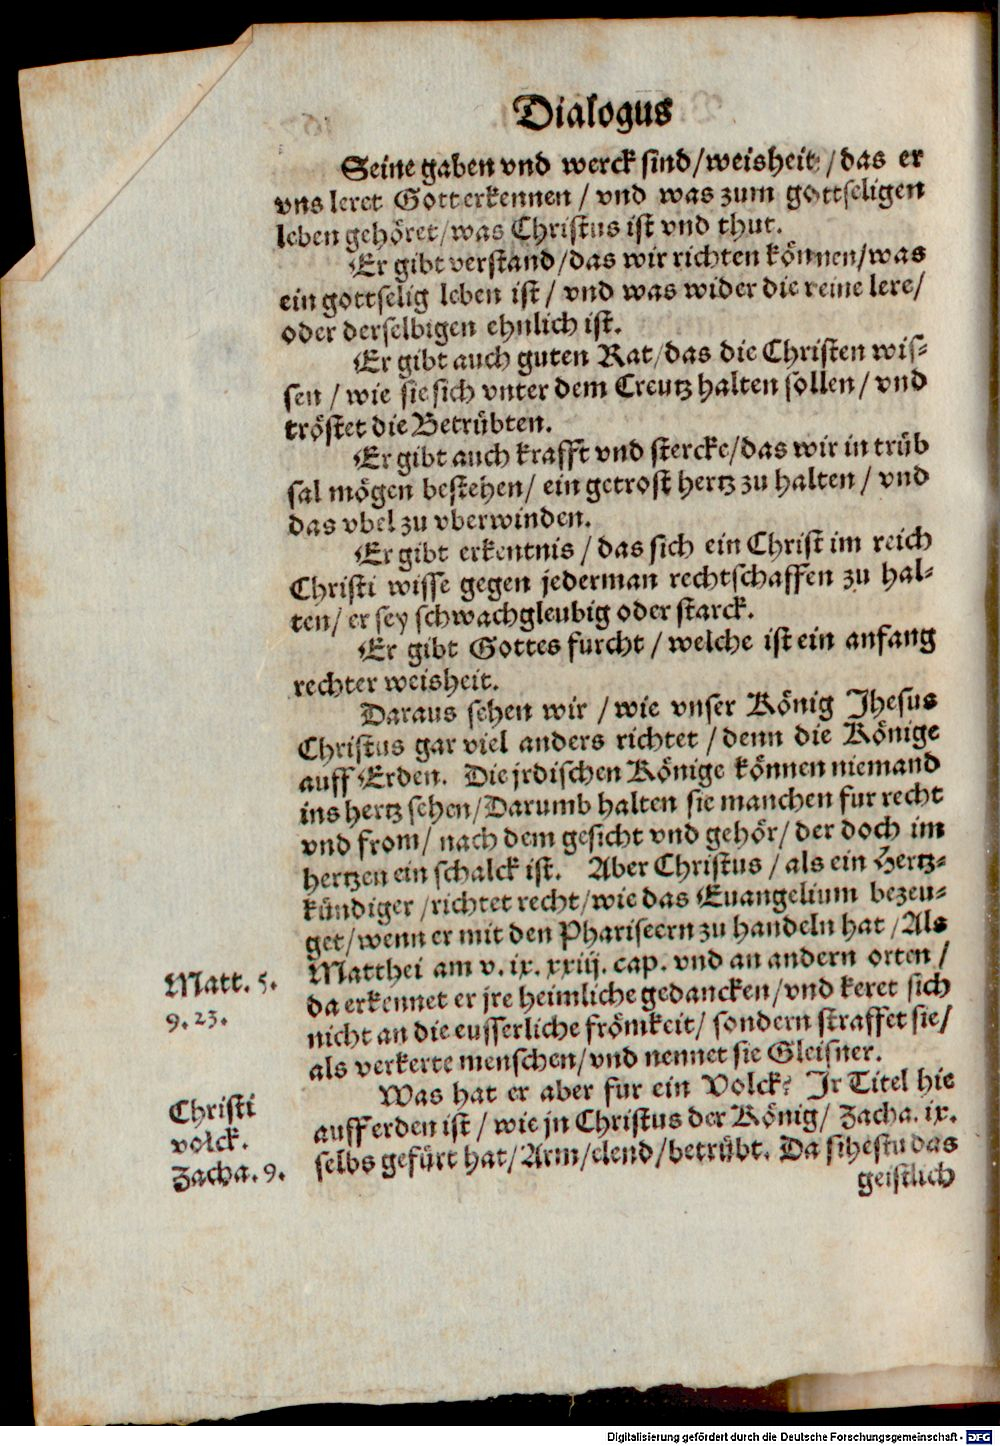 Dialogus
Seine gaben vnd werck sind/weisheit/das er
vns leret Gott erkennen / vnd was zum gottseligen
leben gehöret/was Christus ist vnd thut.
Er gibt verstand/das wir richten können/was
ein gottselig leben ist / vnd was wider die reine lere/
oder derselbigen ehnlich ist.
Er gibt auch guten Rat/das die Christen wis-
sen / wie sie sich vnter dem Creutz halten sollen / vnd
tröstet die Betrübten.
Er gibt auch krafft vnd stercke/das wir in trüb
sal mögen bestehen/ ein getrost hertz zu halten / vnd
das vbel zu vberwinden.
Er gibt erkentnis / das sich ein Christ im reich
Christi wisse gegen jederman rechtschaffen zu hal-
ten/ er sey schwachgleubig oder starck.
Er gibt Gottes furcht / welche ist ein anfang
rechter weisheit.
Daraus sehen wir / wie vnser König Jhesus
Christus gar viel anders richtet / denn die Könige
auff Erden. Die jrdischen Könige können niemand
ins hertz sehen/Darumb halten sie manchen fur recht
vnd from/ nach dem gesicht vnd gehör/ der doch im
hertzen ein schalck ist. Aber Christus / als ein Hertz-
kündiger /richtet recht/wie das Euangelium bezeu-
get/wenn er mit den Phariseern zu handeln hat /Als
Matt. 5. Matthei am v. ix. xxiij. cap. vnd an andern orten /
da erkennet er jre heimliche gedancken/vnd keret sich
9. 23. nicht an die eusserliche frömkeit/ sondern straffet sie/
als verkerte menschen/vnd nennet sie Gleisner.
Was hat er aber fur ein Volck? Jr Titel hie
Christi auff erden ist / wie jn Christus der König/ Zacha. ix.
volck. selbs gefürt hat/Arm/elend/betrübt. Da sihestu das
Zacha. 9. geistlich
Digitalisierung gefördert durch die Deutsche Forschungsgemeinschaft - DFG